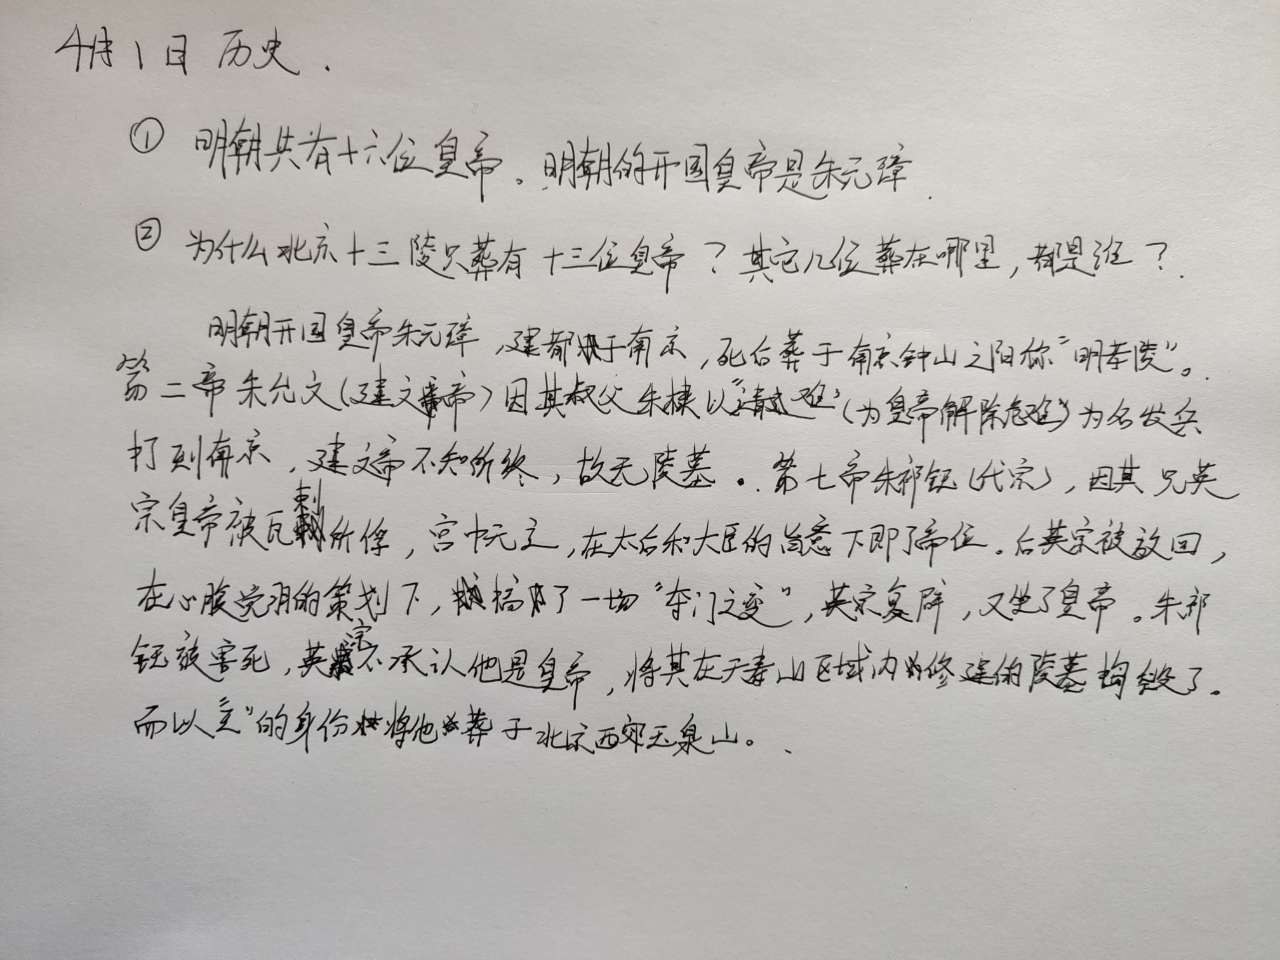 4月1日 历史.
① 明朝共有十六位皇帝。明朝的开国皇帝是朱元璋.
② 为什么北京十三陵只葬有十三位皇帝？其它几位葬在哪里，都是谁？
明朝开国皇帝朱元璋，建都于南京，死后葬于南京钟山之阳称“明孝陵”。
第二帝朱允文(建文帝)因其叔父朱棣以“靖难”(为皇帝解除危难)为名发兵
打到南京，建文帝不知所终，故无陵墓。第七帝朱祁钰(代宗)，因其兄英
宗皇帝被瓦剌所俘，宫中无主，在太后和大臣的旨意下即了帝位。后英宗被放回，
在心腹党羽的策划下，搞了一场“夺门之变”，英宗复辟，又坐了皇帝。朱祁
钰被害死，英宗不承认他是皇帝，将其在天寿山区域内修建的陵墓捣毁了。
而以“王”的身份将他葬于北京西郊玉泉山。